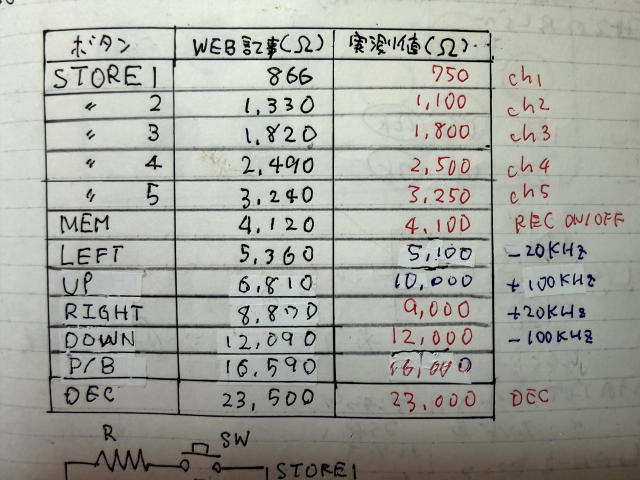 ボタン WEB記事(Ω) 実測値(Ω)
STORE1 866 750 ch1
〃 2 1,330 1,100 ch2
〃 3 1,820 1,800 ch3
〃 4 2,490 2,500 ch4
〃 5 3,240 3,250 ch5
MEM 4,120 4,100 REC ON/OFF
LEFT 5,360 5,100 -20KHz
UP 6,810 10,000 +100KHz
RIGHT 8,870 9,000 +20KHz
DOWN 12,090 12,000 -100KHz
P/B 16,590 16,000
DEC 23,500 23,000 DEC
R SW
STORE1